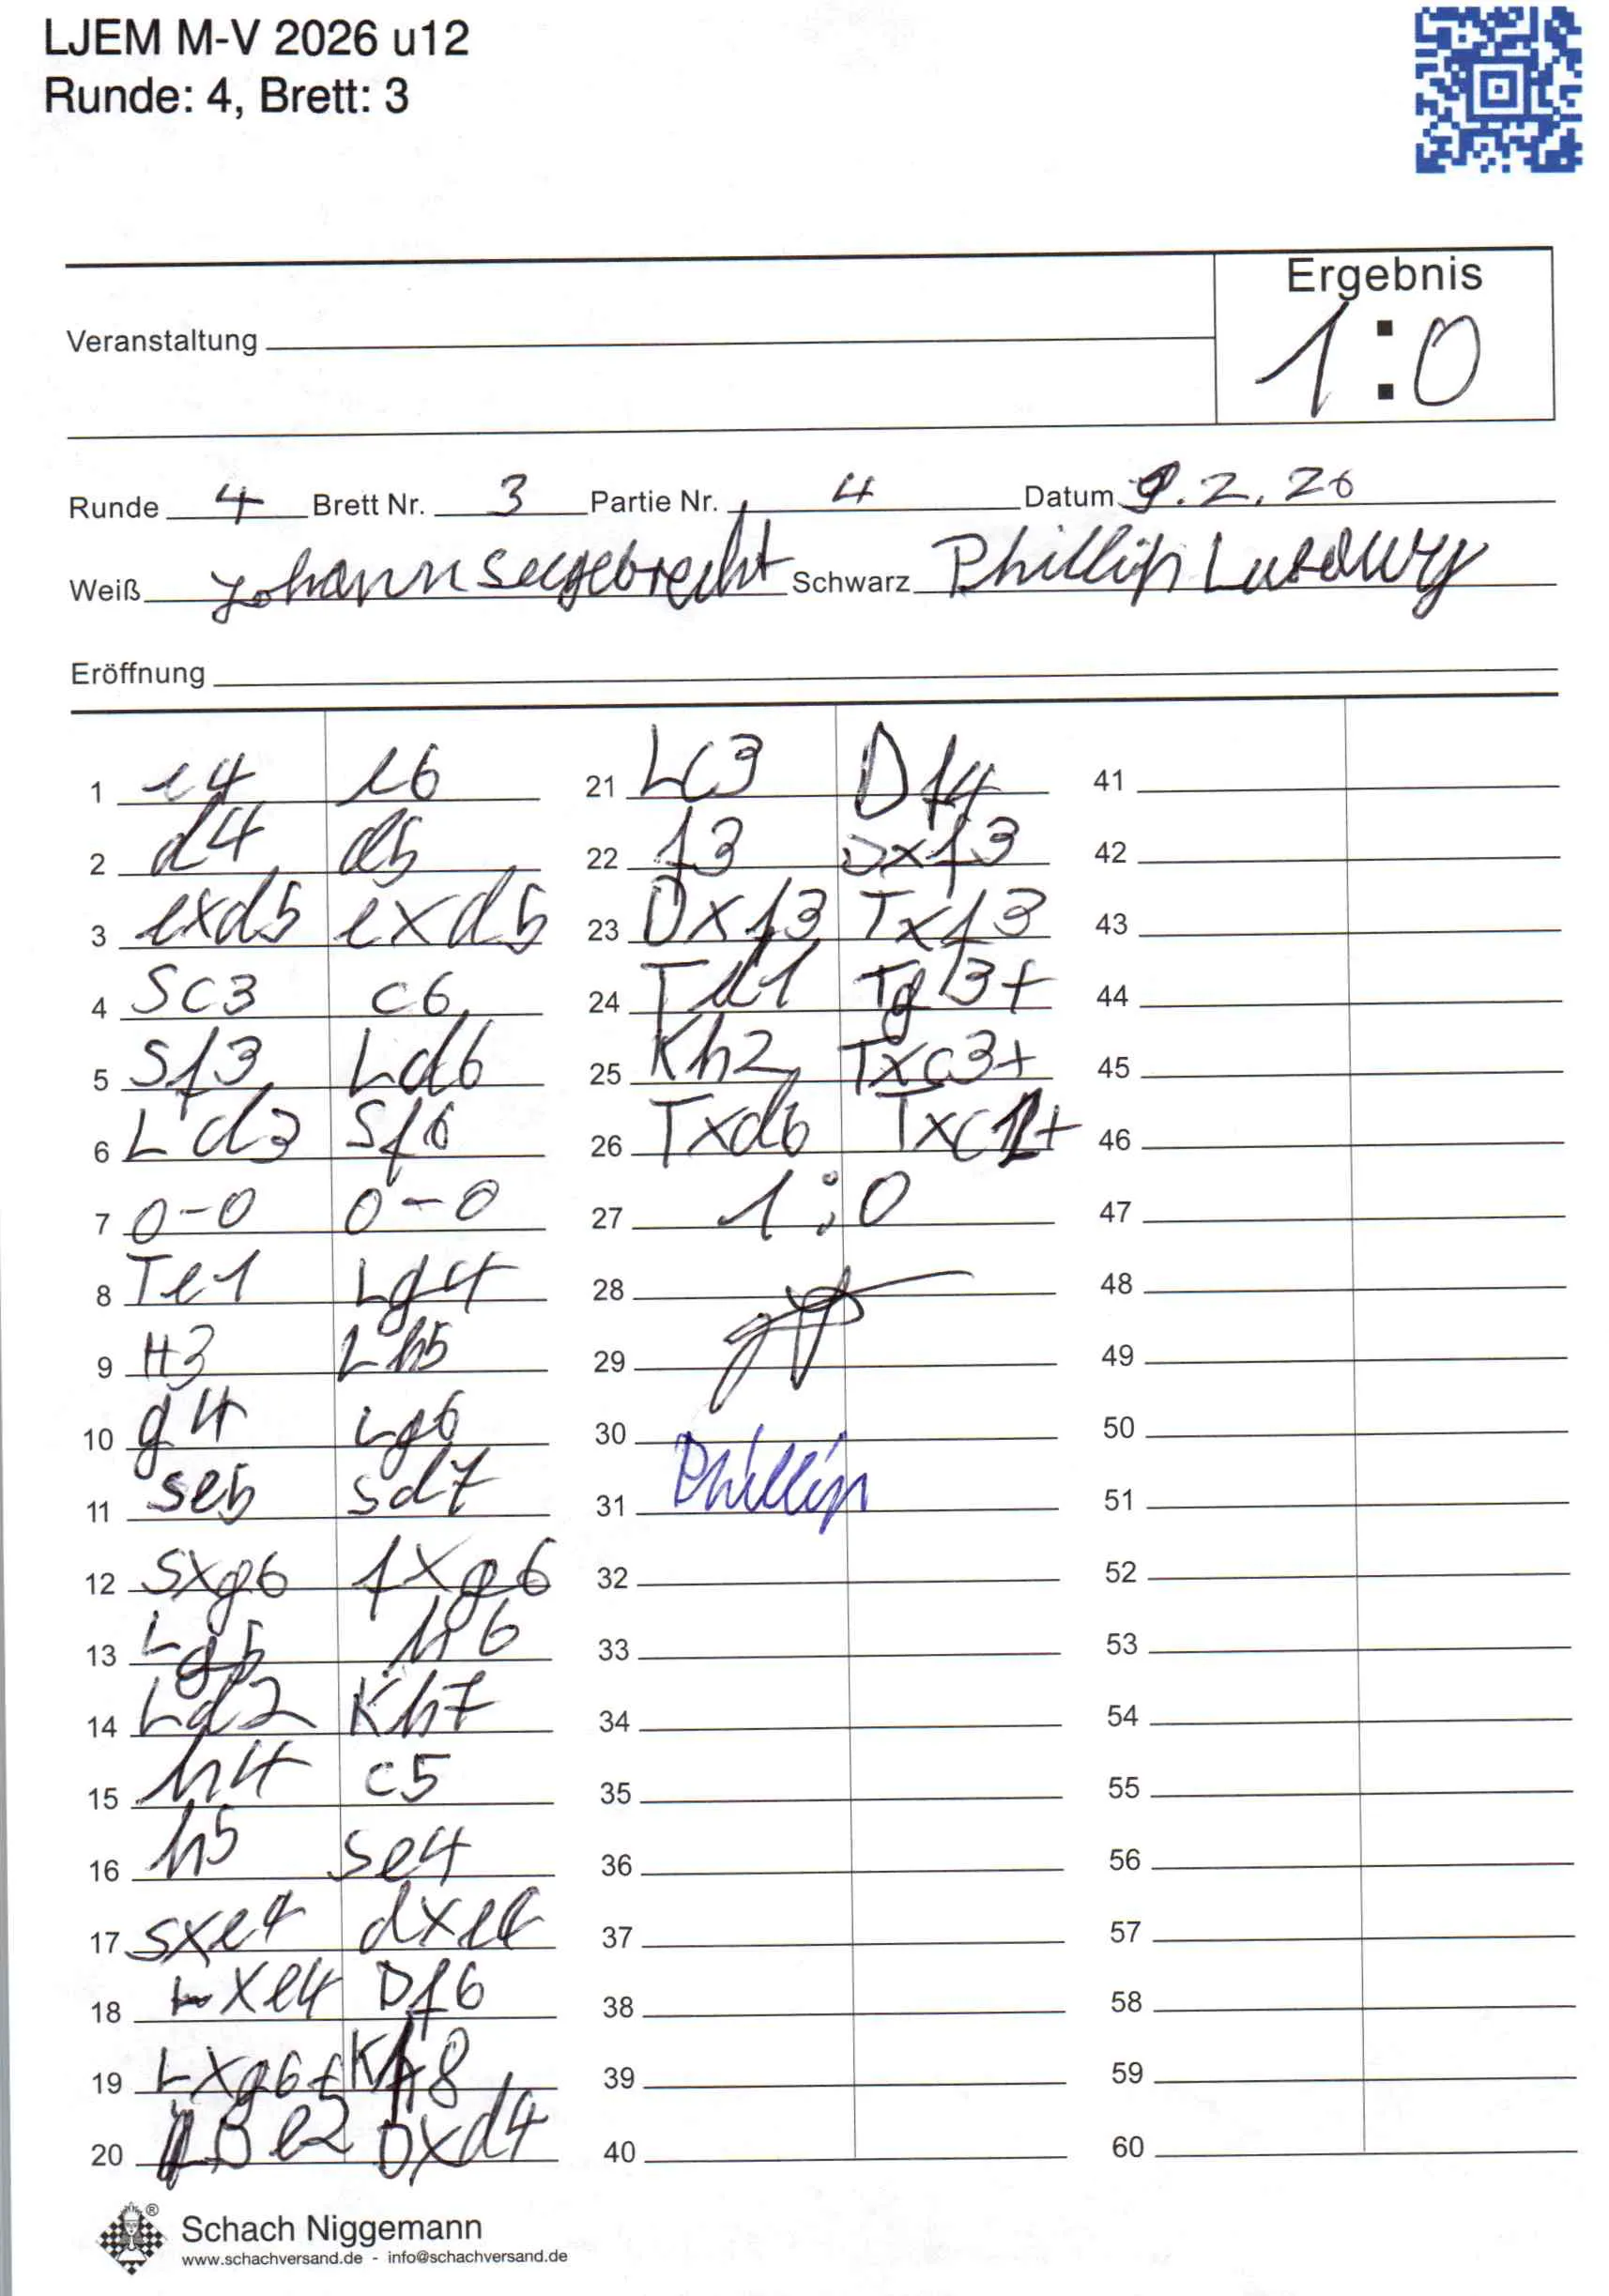 LJEM M-V 2026 u12
Runde: 4, Brett: 3
Ergebnis
1:0
Veranstaltung
Runde 4 Brett Nr. 3 Partie Nr. 4 Datum 9.2.26
Weiß Johann Seegebrecht Schwarz Phillip Ludwig
Eröffnung
1 e4 e6
2 d4 d5
3 exd5 exd5
4 Sc3 c6
5 Sf3 Ld6
6 Ld3 Sf6
7 0-0 0-0
8 Te1 Lg4
9 H3 Lh5
10 g4 Lg6
11 Se5 Sd7
12 Sxg6 fxg6
13 Lg5 h6
14 Ld2 Kh7
15 h4 c5
16 h5 Se4
17 Sxe4 dxe4
18 Lxe4 Df6
19 Lxg6+ Kh8
20 De2 Dxd4
21 Lc3 Df4
22 f3 Dxf3
23 Dxf3 Txf3
24 Td1 Tg3+
25 Kh2 Txc3+
26 Txd6 Txc2+
27 1:0
28
29
30
31 Phillip
32
33
34
35
36
37
38
39
40
41
42
43
44
45
46
47
48
49
50
51
52
53
54
55
56
57
58
59
60
Schach Niggemann
www.schachversand.de - info@schachversand.de